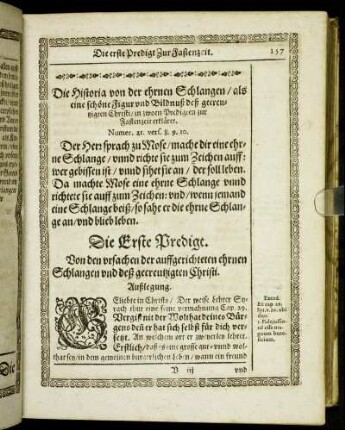 Die erste Predigt Zur Fastenzeit. 157
Die Historia von der ehrnen Schlangen / als
eine schöne Figur vnd Bildnuß deß gecreu-
tzigten Christi / in zween Predigten zur
Fastenzeit erkläret.
Numer. 21. vers. 8. 9. 10.
Der Herr sprach zu Mose / mache dir eine ehr-
ne Schlange / vnnd richte sie zum Zeichen auff:
wer gebissen ist / vnnd sihet sie an / der soll leben.
Da machte Mose eine ehrne Schlange vnnd
richtete sie auff zum Zeichen: vnd / wenn jemand
eine Schlange beiß / so sahe er die ehrne Schlan-
ge an / vnd blieb leben.
Die Erste Predige.
Von den vrsachen der auffgerichteten ehrnen
Schlangen vnd deß gecreutzigten Christi.
Außlegung.
GEliebte in Christo / Der weise Lehrer Sy-
rach thut eine feine vermahnung Cap. 29.
Vergiß nit der Wolthat deines Bür-
gens deñ er hat sich selbst für dich ver-
setzt. An welchem ort er
Erstlich / daß es eine grosse gut- vnnd wol-
that sey / in dem gemeinen burgerlichen Leben / wann ein freund
V iij vnd